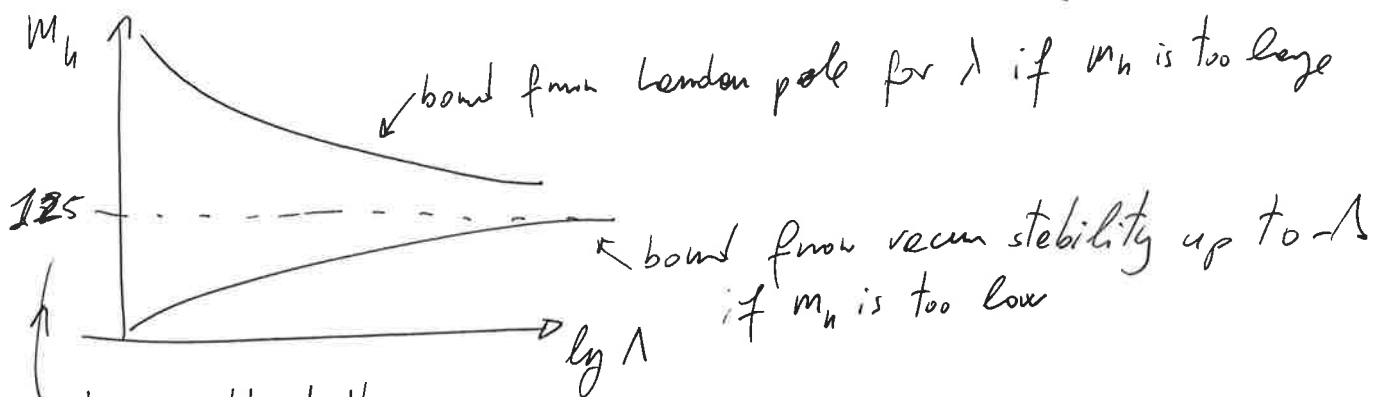 m_h
bound from Landau pole for λ if m_h is too large
125
bound from vacuum stability up to Λ
if m_h is too low
log Λ